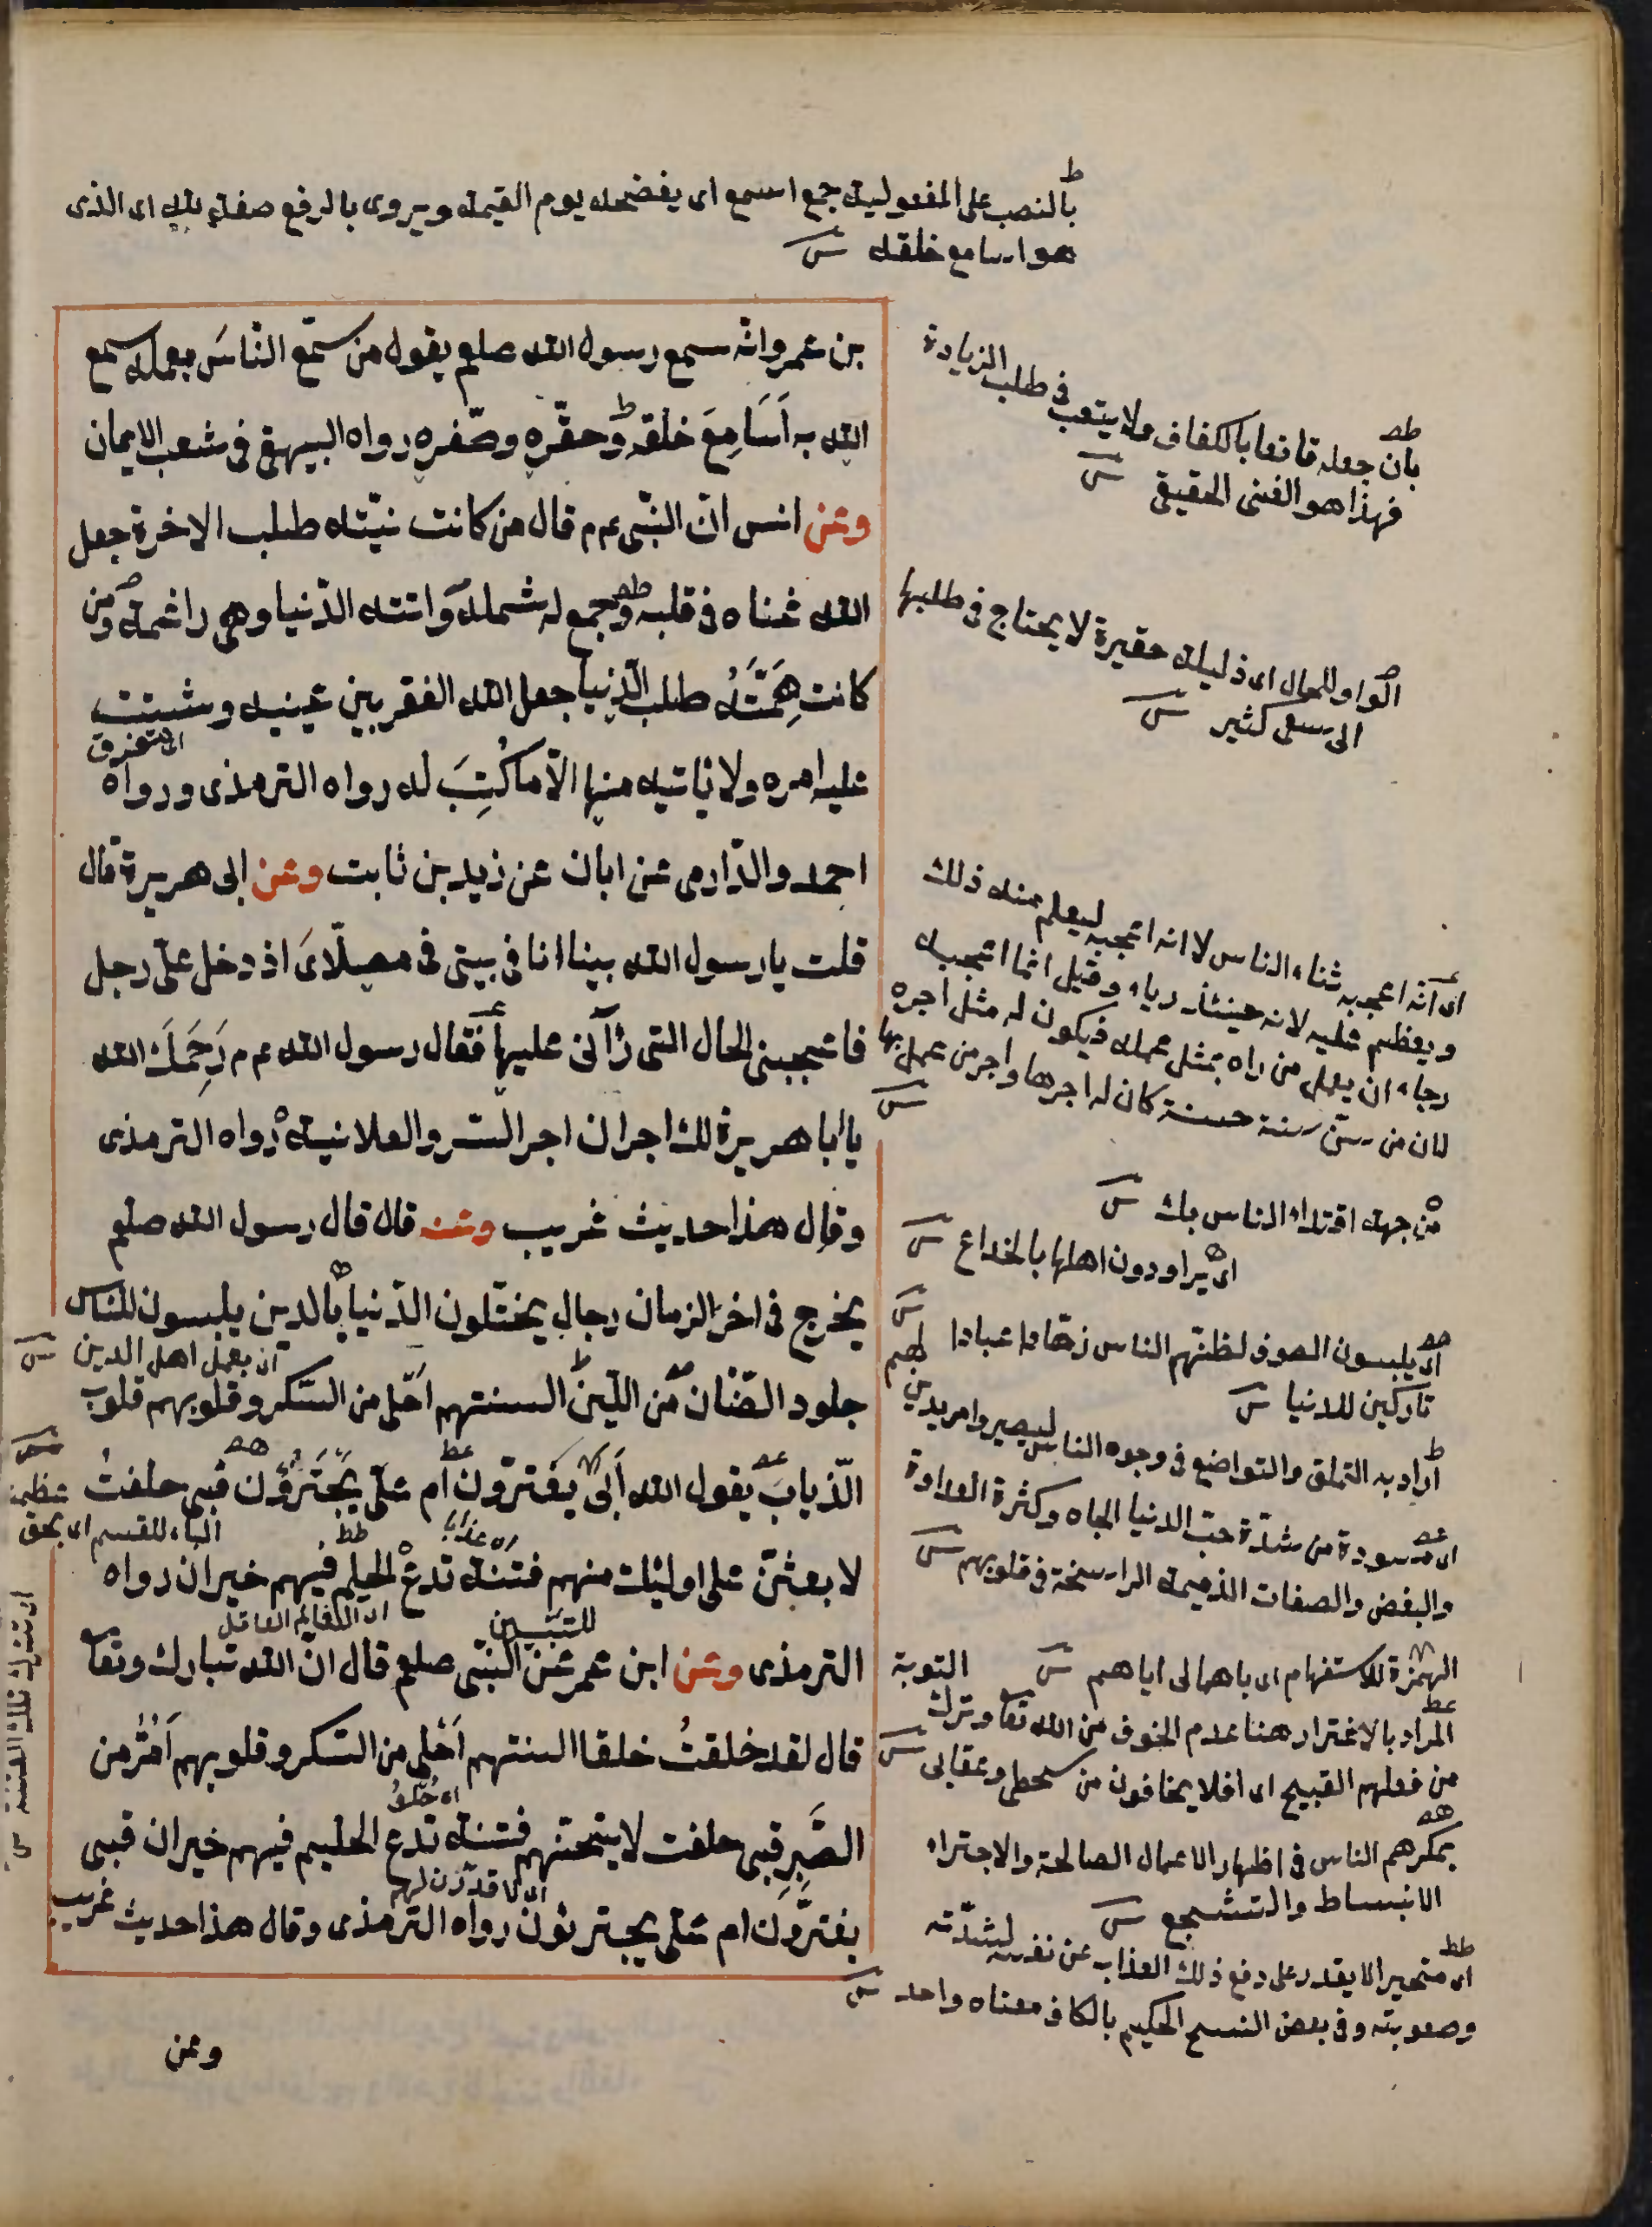 بالنصب على المفعولية جمع اسمع اى يفضحه يوم القيمة ويروى بالرفع صفة لله اى الذى
هو اسامع خلقه
بن عمرو انه سمع رسول الله صلعم يقول من سمّع الناسَ بعمله سمع
الله به اَسَامِعَ خلقه وحقّره وصغّره رواه البيهقى فى شعب الايمان
وعن انس انّ النبّى عم م قال من كانت نيّته طلب الاخرة جعل
الله غناه فى قلبه وجمع له شمله واتته الدّنيا وهى راغمة ومن
كانت هِمَّتَهُ طلب الدّنيا جعل الله الفقر بين عينيه وشتت
اى تفرق
عليه امره ولا ياتيه منها الّا ما كُتِبَ له رواه الترمذى ورواه
احمد والدّارمى عن ابان عن زيد بن ثابت وعن ابى هريرة قال
قلت يا رسول الله بينا انا فى بيتى فى مصلّاىَ اذ دخل علىّ رجل
فاعجبنى الحال التى رأنى عليها فقال رسول الله عم م رَحِمَكَ الله
يا ابا هريرة لك اجران اجر السّر والعلانية رواه الترمذى
وقال هذا حديث غريب وعنه قال قال رسول الله صلعم
يخرج فى اخر الزمان رجال يختلون الدّنيا بالدين يلبسون للناس
ان بعمل اهل الدين
جلود الضّان من اللّين السنتهم احلى من السّكر وقلوبهم قلوب
الذّياب يقول الله أبى يغترّون ام علىّ يَجْتَرؤُن فبى حلفتُ
الباء للقسم اى بحق
عظمة
لا بعثنّ على اوليك منهم فتنة تدع الحليم فيهم خيران رواه
اى عذابا
اى العالم العاقل
للتبيين
الترمذى وعن ابن عمر عن النبّى صلعم قال انّ الله تبارك وتعا
قال لقد خلقتُ خلقا السنتهم اَحْلى من السّكر وقلوبهم اَمَرُّ من
الصَّبِرِ فبى حلفت لا يتحنّهم فتنة تدع الحليم فيهم خيران فبى
اى لا قدّرن لهم
يغترّون ام علىّ يجترئون رواه الترمذى وقال هذا حديث غريب
وعن
اى تترك تلك الفتنة
بان جعله قانعا بالكفاف ولا يتعب فى طلب الزيادة
فهذا هو الغنى الحقيقى
الواو للحال اى ذليلة حقيرة لا يحتاج فى طلبها
الى سعى كثير
اى انه اعجبه ثناء الناس لا انه اعجبه ليعلم منه ذلك
ويعظم عليه لانه حينئذ رياء وقيل انما اعجبه
رجاء ان يعمل من راه بمثل عمله فيكون له مثل اجره
لان من سنّ سنة حسنة كان له اجرها واجر من عمل بها
من جهة اقتداء الناس بك
اى يراودون اهلها بالخداع
اى يلبسون الصوف لظنّهم الناس زهّادا عبادا
تاركين للدنيا
اراد به التملق والتواضع فى وجوه الناس ليصيروا مريدين لهم
اى مسودة من شدّة حبّ الدنيا الجاه وكثرة العداوة
والبغض والصفات الذميمة الراسخة فى قلوبهم
الهمزة للاستفهام اى باهمالى اياهم
المراد بالاغترار هنا عدم الخوف من الله تعا وترك التوبة
من فعلهم القبيح اى افلا يخافون من سخطى وعقابى
بمكرهم الناس فى اظهار الاعمال الصالحة والاجتراء
الانبساط والتشجع
اى متحيرا لا يقدر على دفع ذلك العذاب عن نفسه لشدّته
وصعوبته وفى بعض النسخ الحكيم بالكاف معناه واحد